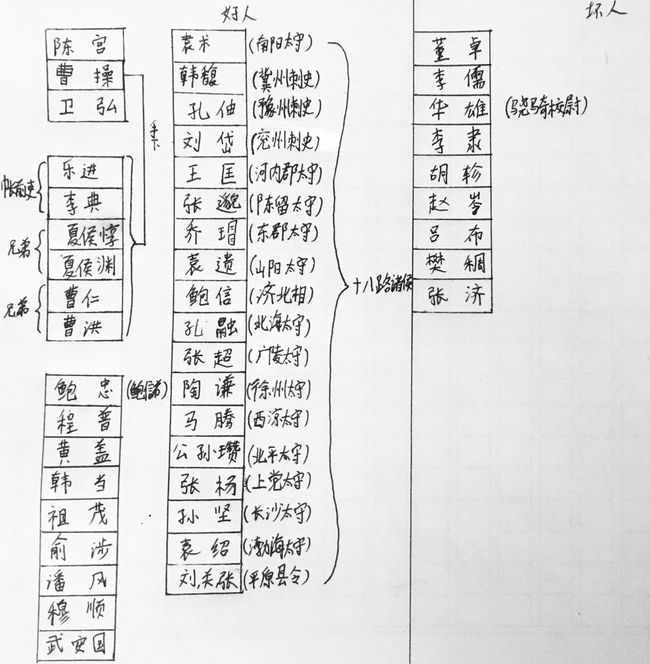 好人
坏人
陈宫
曹操
卫弘
手下
乐进
李典
帐前吏
夏侯惇
夏侯渊
兄弟
曹仁
曹洪
兄弟
鲍忠 (鲍信弟)
程普
黄盖
韩当
祖茂
俞涉
潘凤
穆顺
武安国
袁术 (南阳太守)
韩馥 (冀州刺史)
孔伷 (豫州刺史)
刘岱 (兖州刺史)
王匡 (河内郡太守)
张邈 (陈留太守)
乔瑁 (东郡太守)
袁遗 (山阳太守)
鲍信 (济北相)
孔融 (北海太守)
张超 (广陵太守)
陶谦 (徐州太守)
马腾 (西凉太守)
公孙瓒 (北平太守)
张杨 (上党太守)
孙坚 (长沙太守)
袁绍 (渤海太守)
刘关张 (平原县令)
十八路诸侯
董卓
李儒
华雄 (骁骑校尉)
李肃
胡轸
赵岑
吕布
樊稠
张济